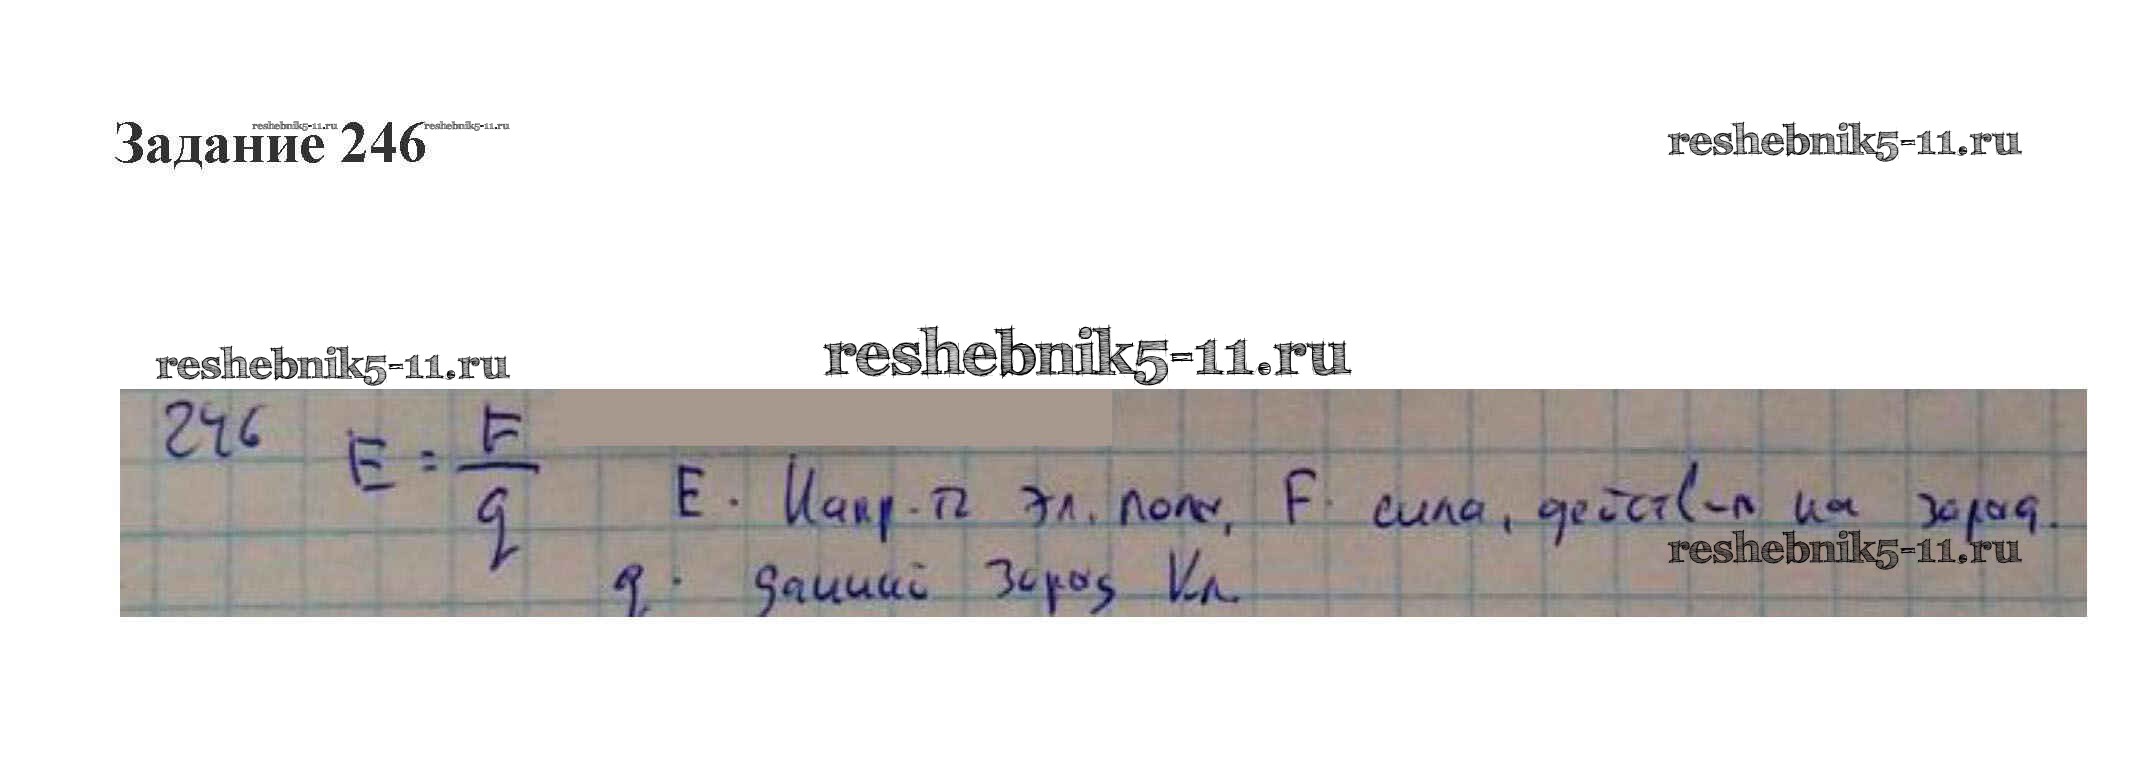 Задание 246
reshebnik5-11.ru
reshebnik5-11.ru
reshebnik5-11.ru
reshebnik5-11.ru
reshebnik5-11.ru
246 E = F/q
E - Напр-ть эл. поля, F - сила, действ-я на заряд.
reshebnik5-11.ru
q - данный заряд Кл